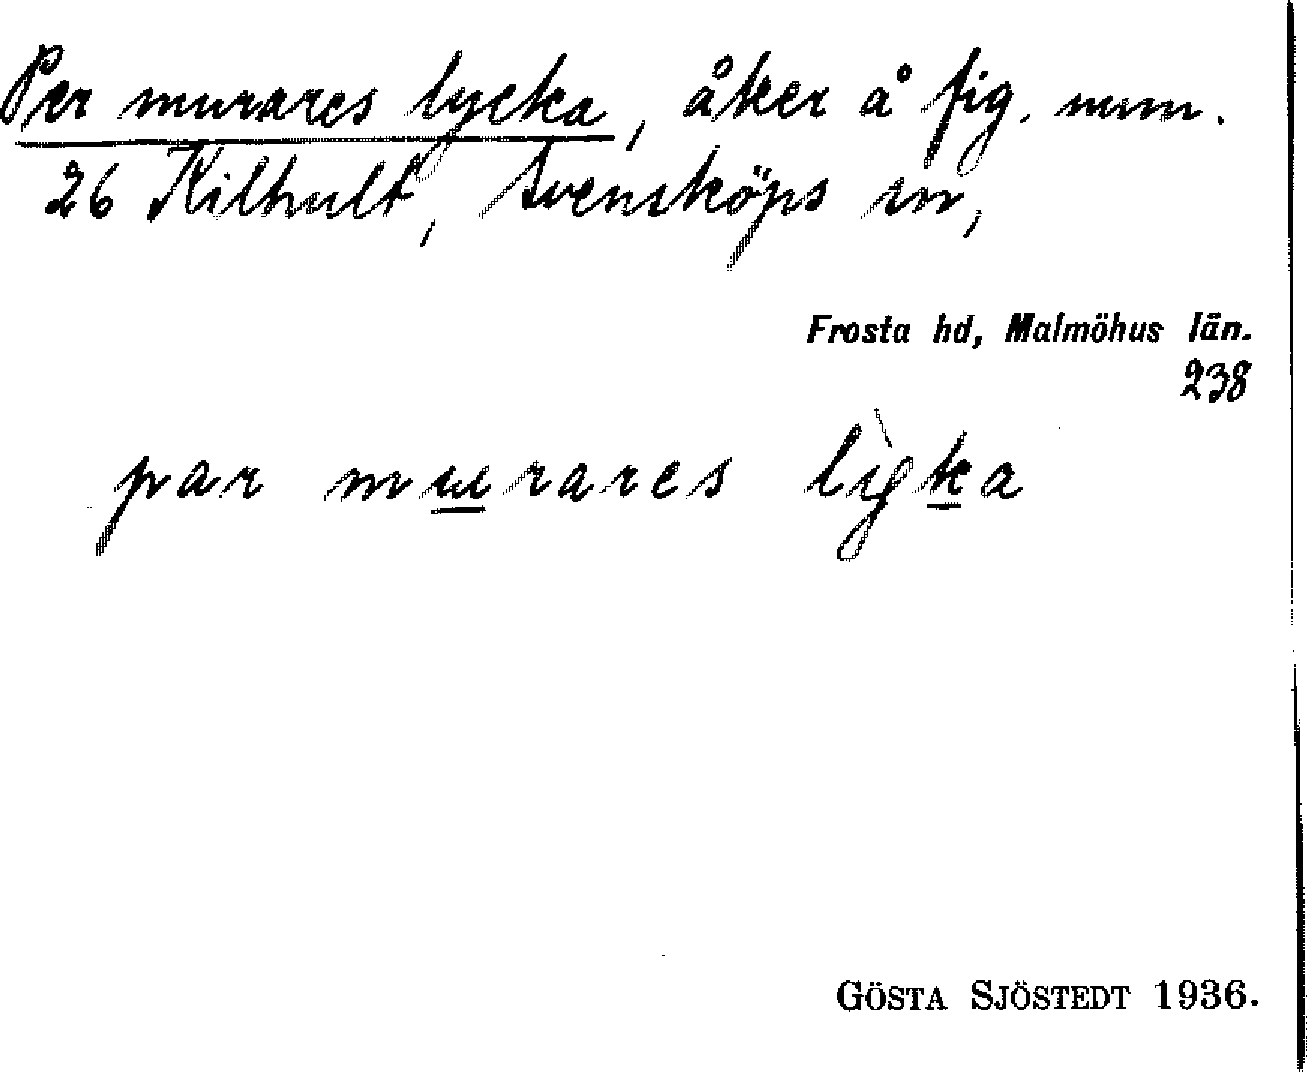 Per murares lycka, åker å fig. num.
26 Kilhult, Svensköps sn,
Frosta hd, Malmöhus län.
238
par murares lỳka
GÖSTA SJÖSTEDT 1936.